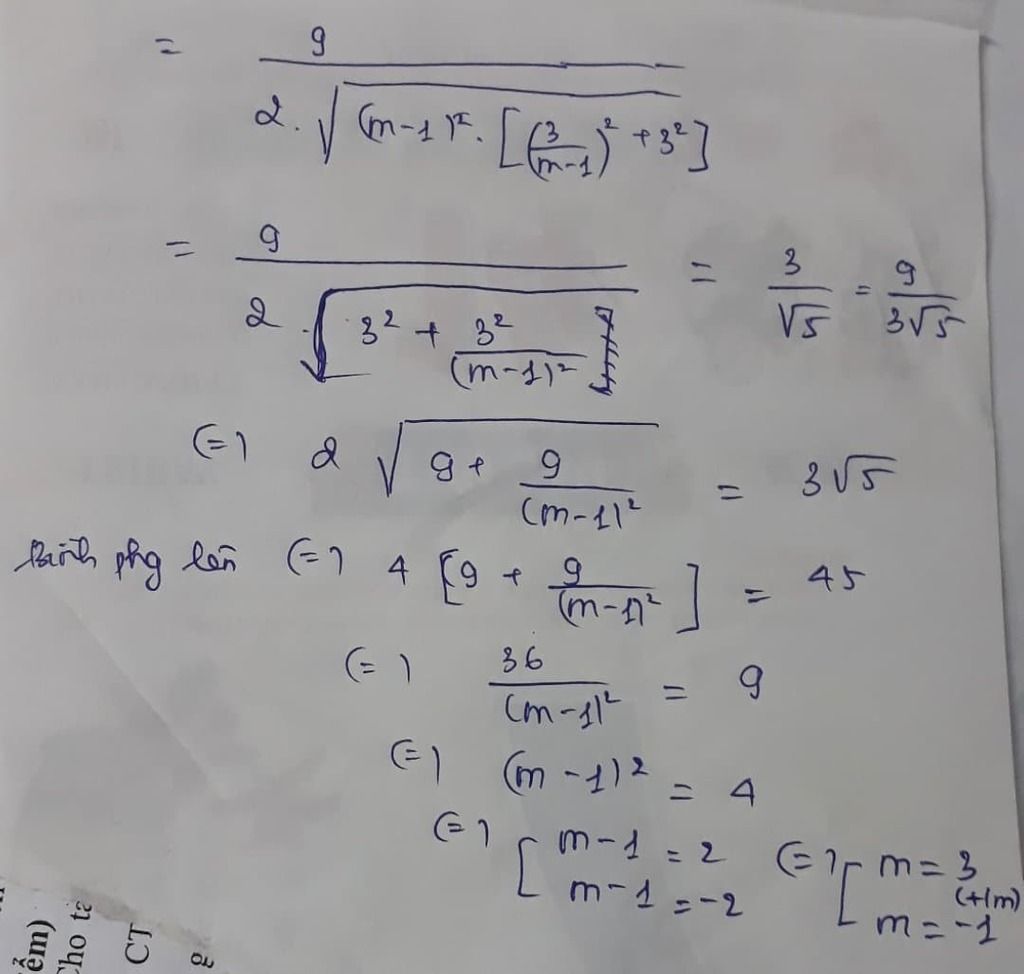 = 9/(2.√((m-1)².[(3/(m-1))² + 3²]))
= 9/(2.√(3² + 3²/(m-1)²)) = 3/√5 = 9/(3√5)
(=) 2√(9 + 9/(m-1)²) = 3√5
Bình phg lên (=) 4[9 + 9/(m-1)²] = 45
(=) 36/(m-1)² = 9
(=) (m-1)² = 4
(=) [ m-1 = 2 (=) [ m = 3
m-1 = -2 m = -1 (t/m)
ểm)
Cho
CT
g